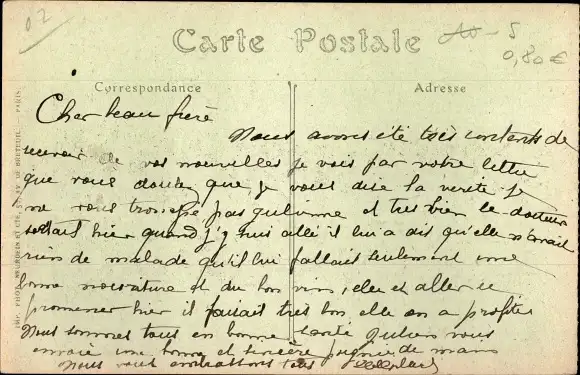 02
Carte Postale
A0-5
0,80€
Correspondance
Adresse
Cher beau frère
Nous avons été très contents de
recevoir de vos nouvelles je vois par votre lettre
que vous doutez que je vous dise la verité je
ne vous trompe pas qu'elle et très bien le docteur
sortait hier quand j'y suis allé il lui a dit qu'elle n'avait
rien de malade qu'il lui fallait seulement une
bonne nourriture et du bon vin, elle et aller se
promener hier il faisait très bon elle en a profité
Nous sommes tous en bonne santé Julien vous
envoie une bonne et sincère poignée de mains
Nous vous embrassons tous